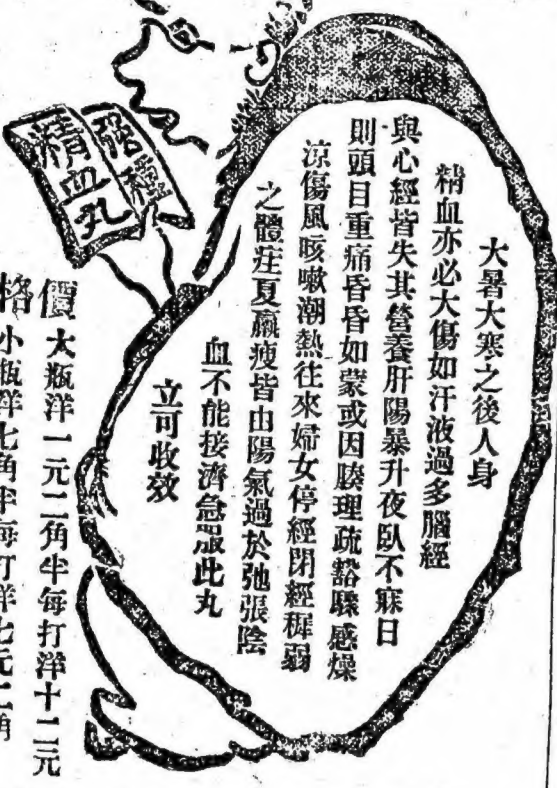 大暑大寒之後人身
精血亦必大傷如汗液過多腦經
與心經皆失其營養肝陽暴升夜臥不寐日
則頭目重痛昏昏如蒙或因腠理疏豁驟感燥
涼傷風咳嗽潮熱往來婦女停經閉經稺弱
之體疰夏羸瘦皆由陽氣過於弛張陰
血不能接濟急服此丸
立可收效
強種
精血丸
價格
大瓶洋一元二角半每打洋十二元
小瓶洋七角半每打洋七元二角